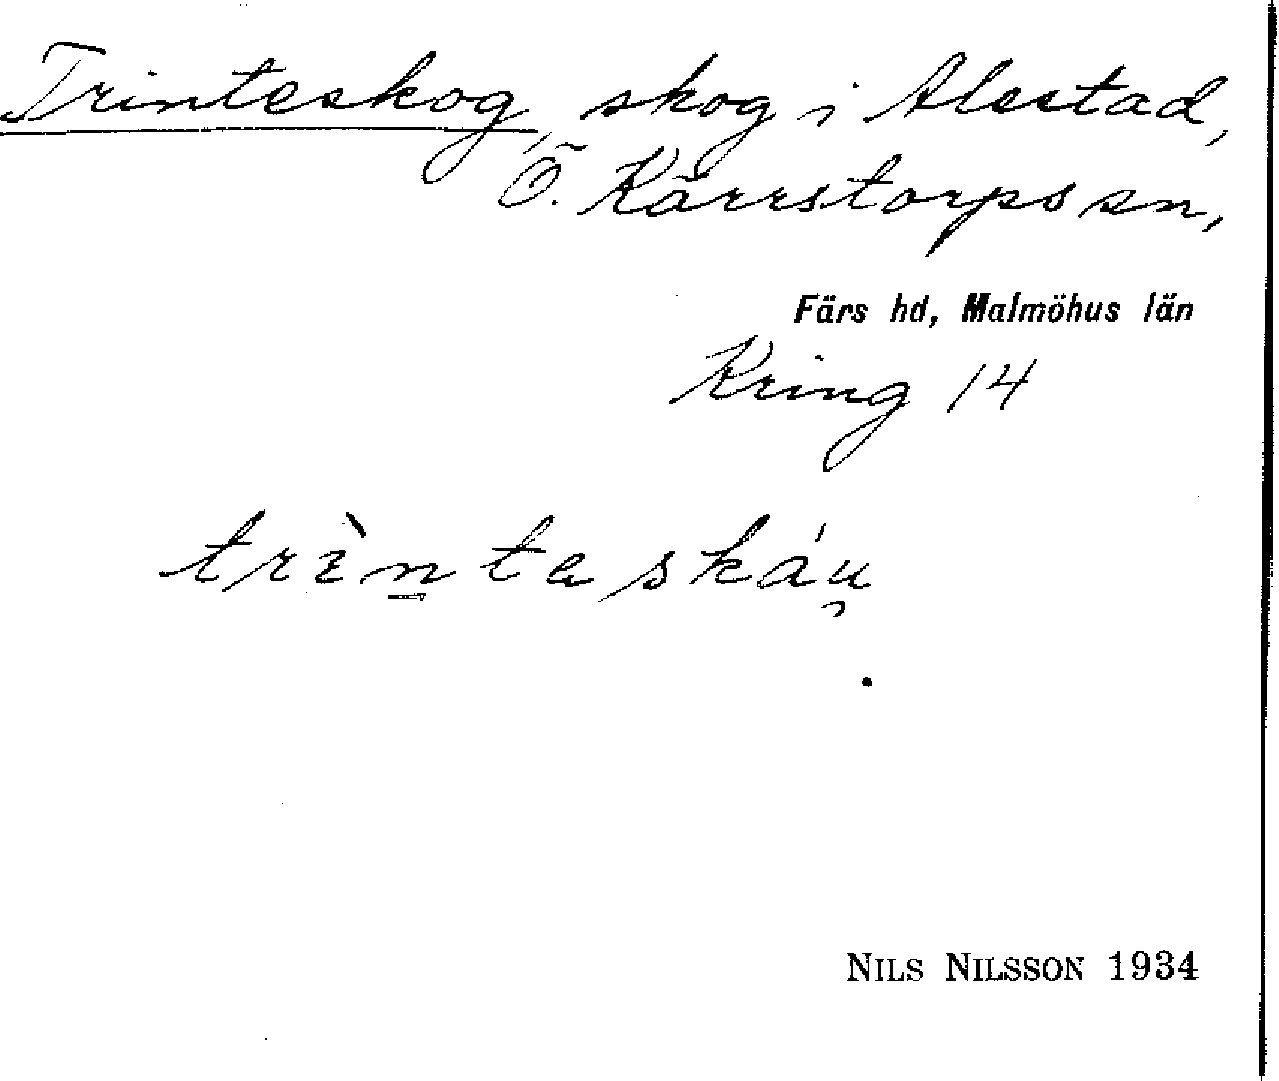 Trinteskog, skog i Alestad,
Ö. Kärrstorps sn,
Färs hd, Malmöhus län
Kring 14
trı̀n̲teskáu̡
NILS NILSSON 1934